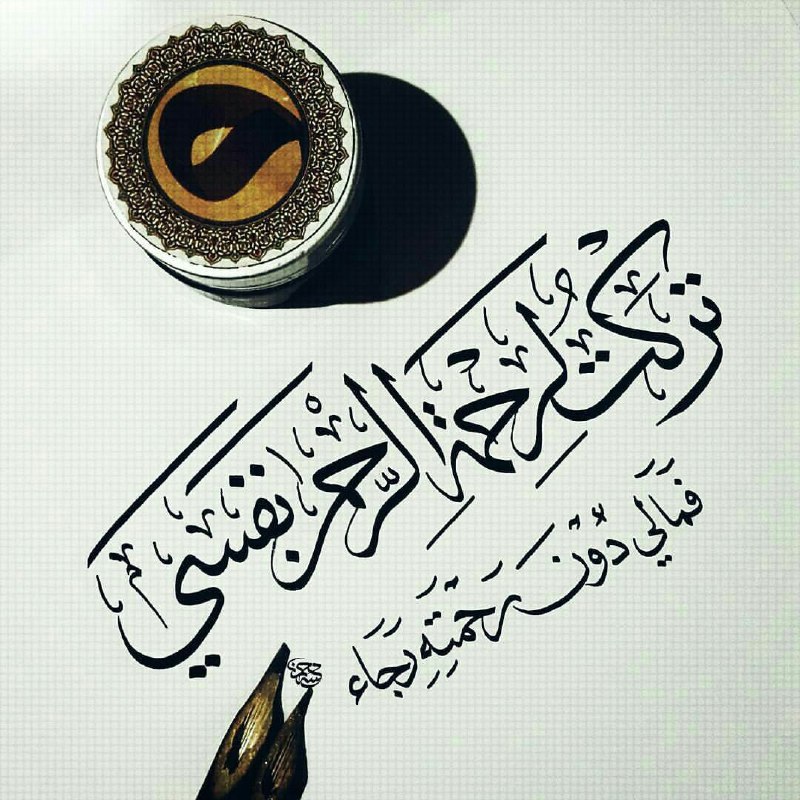 تركت لرحمة الرَّحمن نفسي
فَمَالَي دُوْنَ رَحْمَتِهِ رَجَاء